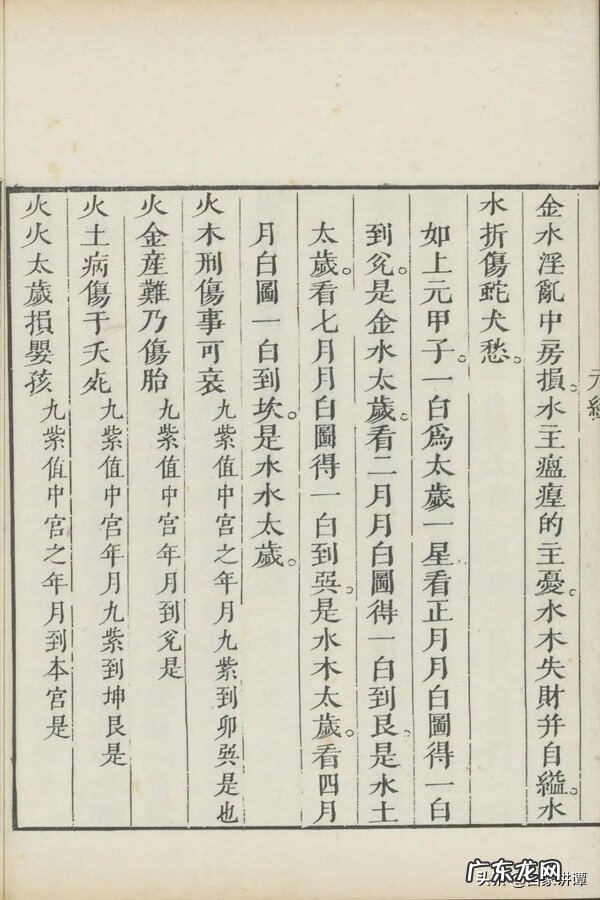 元經
金水淫亂中房損。水主瘟㾮的主憂。水木失財并自縊。水
水折傷蛇犬愁。
如上元甲子。一白爲太歲一星看正月月白圖得一白
到兊。是金水太歲。看二月月白圖得一白到艮。是水土
太歲。看七月月白圖得一白到巽。是水木太歲。看四月
月白圖一白到坎。是水水太歲。
火木刑傷事可哀 九紫值中宮之年月九紫到卯巽是也
火金産難乃傷胎 九紫值中宮年月到兊是
火土病傷于夭死 九紫值中宮年月九紫到坤艮是
火火太歲損嬰孩 九紫值中宮之年月到本宮是
广东龙网